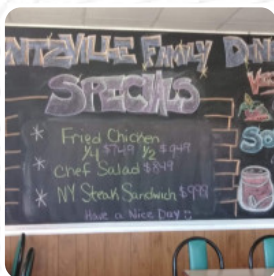 NTZVILLE FAMILY DIN
SPECIALS
* Fried Chicken
1/4 $7.49 1/2 $9.49
* Chef Salad $8.49
* NY Steak Sandwich $9.99
Have a Nice Day